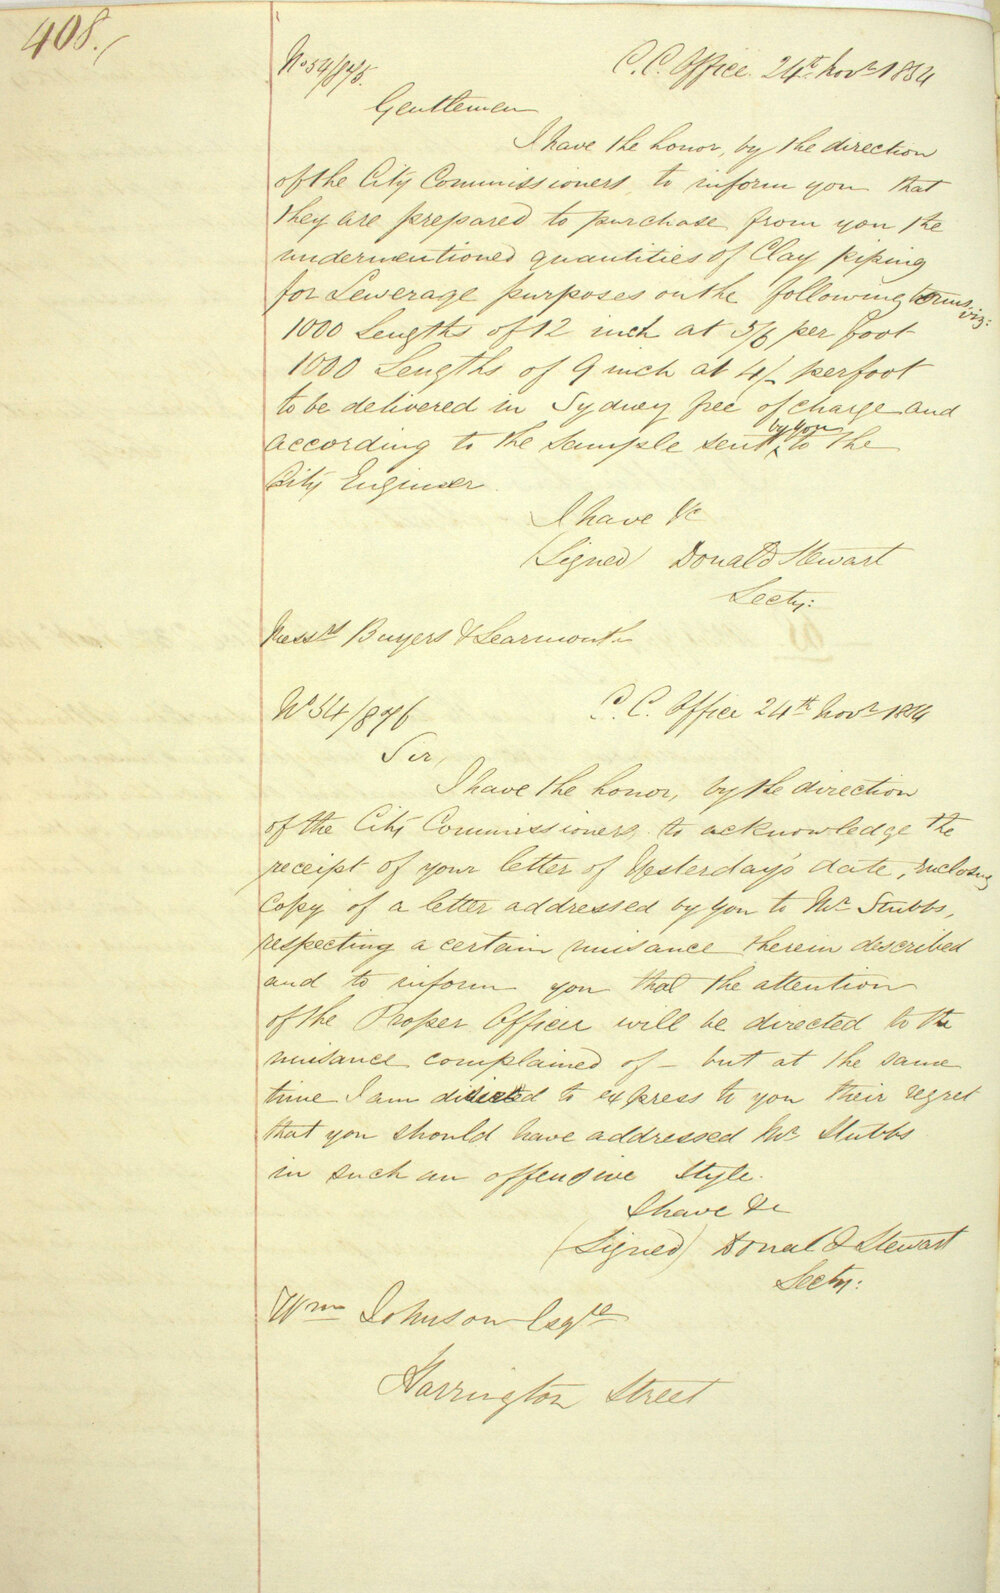 408./
No 54/875. C. C. Office 24th Novr 1854
Gentlemen
I have the honor, by the direction
of the City Commissioners, to inform you that
they are prepared to purchase from you the
undermentioned quantities of Clay piping
for Sewerage purposes on the following terms viz:
1000 Lengths of 12 inch at 5/6 per foot
1000 Lengths of 9 inch at 4/- per foot
to be delivered in Sydney free of charge and
according to the sample sent by you to the
City Engineer.
I have &c
(Signed) Donald Stewart
Secty:
Messrs Buyers & Learmonth
No 54/876 C. C. Office 24th Novr 1854
Sir,
I have the honor, by the direction
of the City Commissioners, to acknowledge the
receipt of your letter of Yesterday's date, enclosing
Copy of a letter addressed by you to Mr Stubbs,
respecting a certain nuisance therein described
and to inform you that the attention
of the Proper Officer will be directed to the
nuisance complained of - but at the same
time I am directed to express to you their regret
that you should have addressed Mr Stubbs
in such an offensive Style.
I have &c
(Signed) Donald Stewart
Secty:
Wm Johnson Esqre
Harrington Street